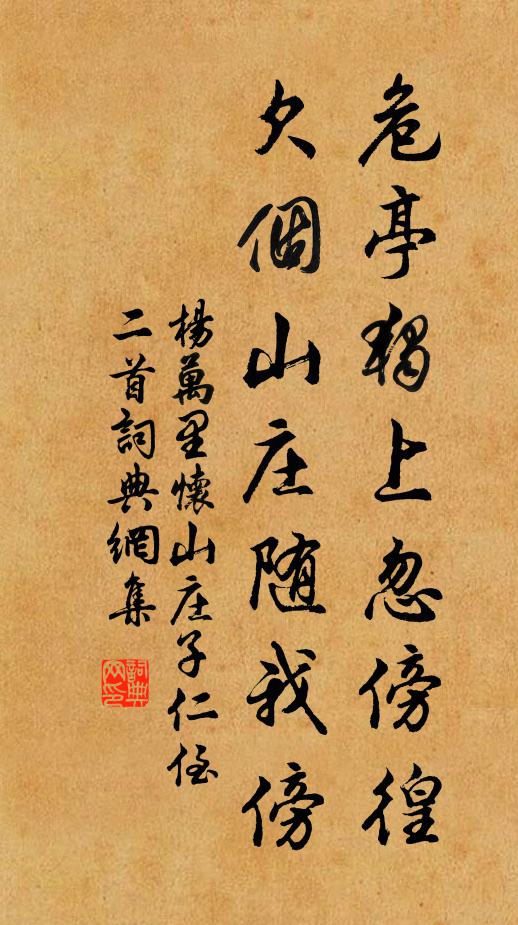 危亭獨上忽傍徨
欠個山庄随我傍
楊萬里懷山庄子仁侄
二首詞典網集
詞典
网印